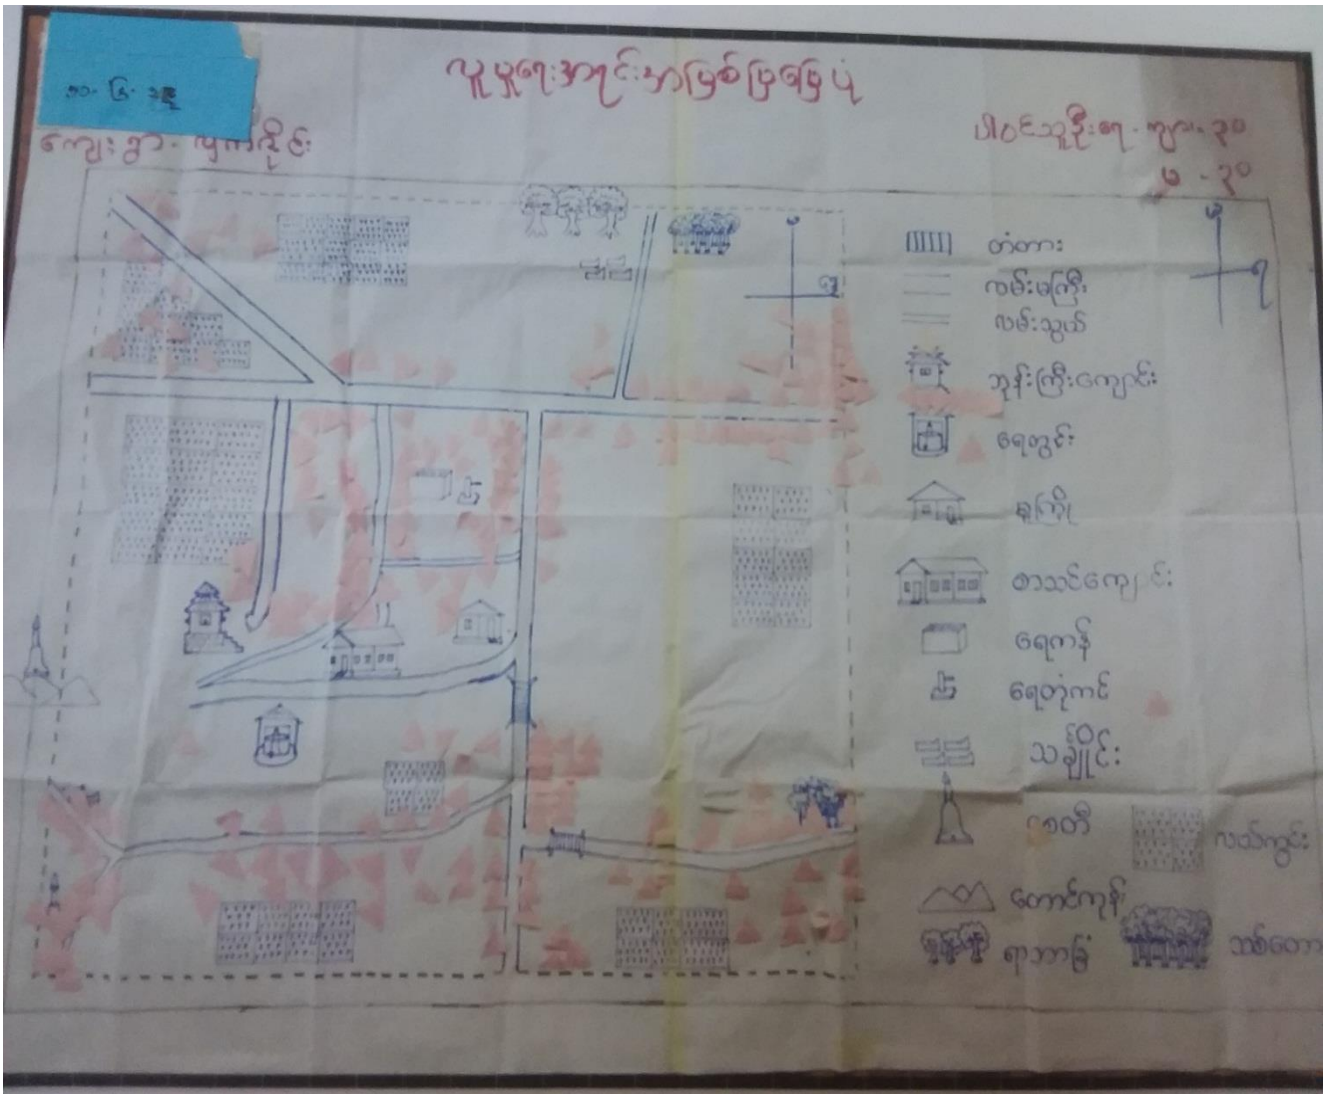 လူမှုရေးအရင်းအမြစ်ပြမြေပုံ
ကျေးရွာ -
ပါဝင်သူဦးရေ - ကျား - ၃၀
မ - ၃၀
တံတား
လမ်းမကြီး
လမ်းသွယ်
ဘုန်းကြီးကျောင်း
ရေတွင်း
မူကြို
စာသင်ကျောင်း
ရေကန်
ရေတုံကင်
သင်္ချိုင်း
စေတီ
လယ်ကွင်း
တောင်ကုန်း
ရာဘာခြံ
သစ်တော